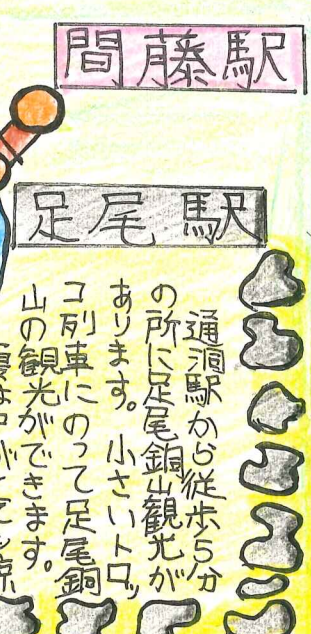 間藤駅
足尾駅
通洞駅から徒歩5分
の所に足尾銅山観光が
あります。小さいトロッ
コ列車にのって足尾銅
山の観光ができます。